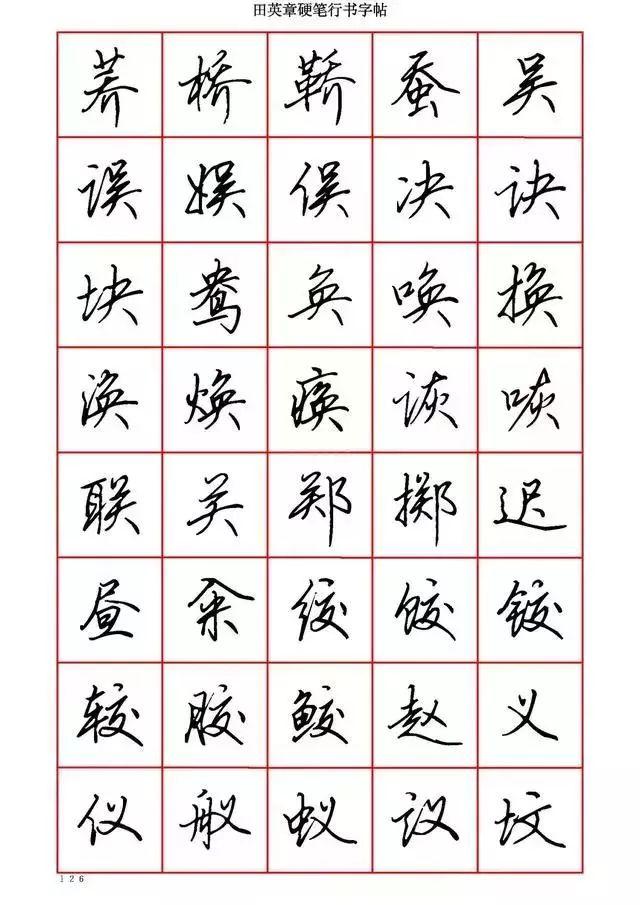 田英章硬笔行书字帖
荞桥鞒蚕吴
误娱俣决诀
块鸯奂唤换
涣焕痪诙咴
联关郑掷迟
昼绞饺铰
较胶鲛赵义
仪舣蚁议坟
126